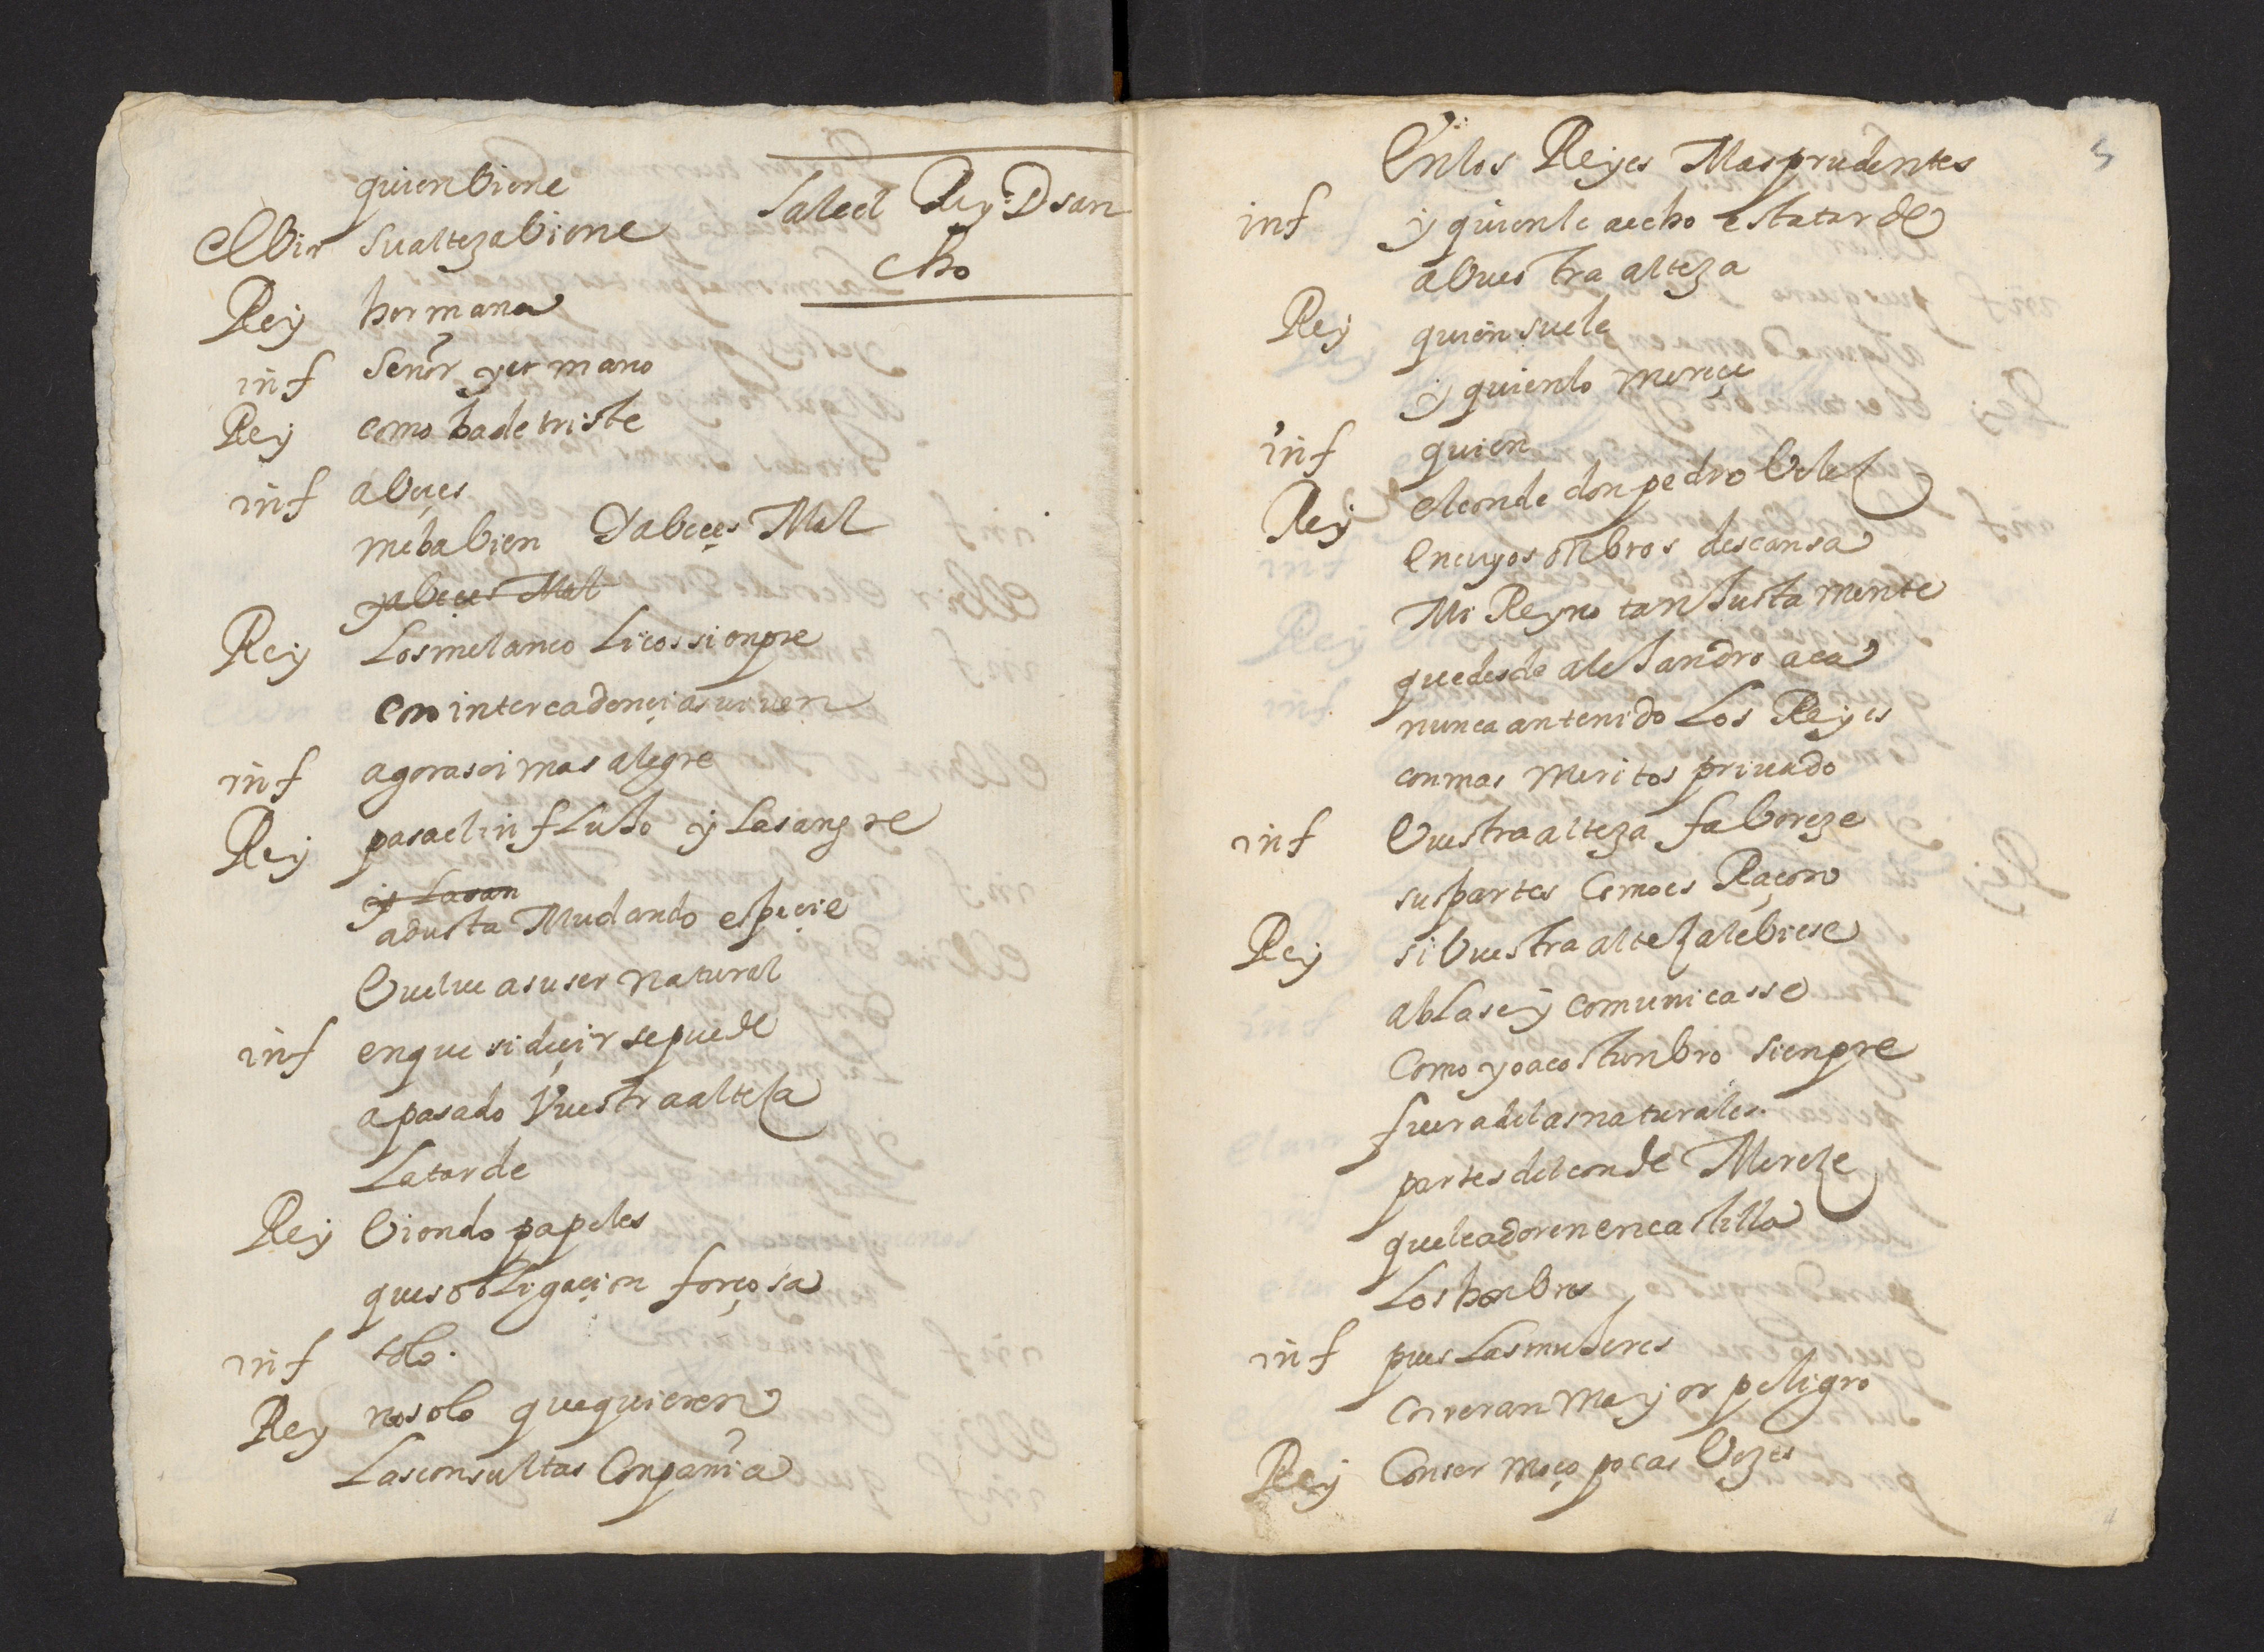 quien biene
elbir su alteza biene
sale el Rey D san
cho
Rey hermana
inf señor y ermano
Rey como ba de triste
inf a beçes
me ba bien y a beçes Mal
y a beçes Mal
Rey Los melancolicos sienpre
con intercadençias uiuen
inf agora soi mas alegre
Rey pasa el influjo y La sangre
y La san
adusta Mudando espeçie
buelue a su ser natural
inf en que si deçir se puede
a pasado Vuestra alteza
La tarde
Rey biendo papeles
ques obligaçion forçosa
inf solo.
Rey no solo que quieren
Las consultas conpañia
5
En los Reyes Mas prudentes
inf y quien le a echo esta tarde
a buestra alteza
Rey quien suele
y quien lo mereçe
inf quien
Rey el conde don pedro belez
en cuyos onbros descansa
Mi Reyno tan justa mente
que desde alejandro aca
nunca an tenido Los Reyes
con mas meritos priuado
inf buestra alteza faboreze
sus partes como es Raçon
Rey si buestra alteza le biese
ablase y comunicasse
como yo acostunbro sienpre
fuera de las naturales
partes del conde Mereze
que le adoren en castilla
Los honbres
inf pues Las mujeres
correran mayor peligro
Rey con ser moço pocas bezes
4